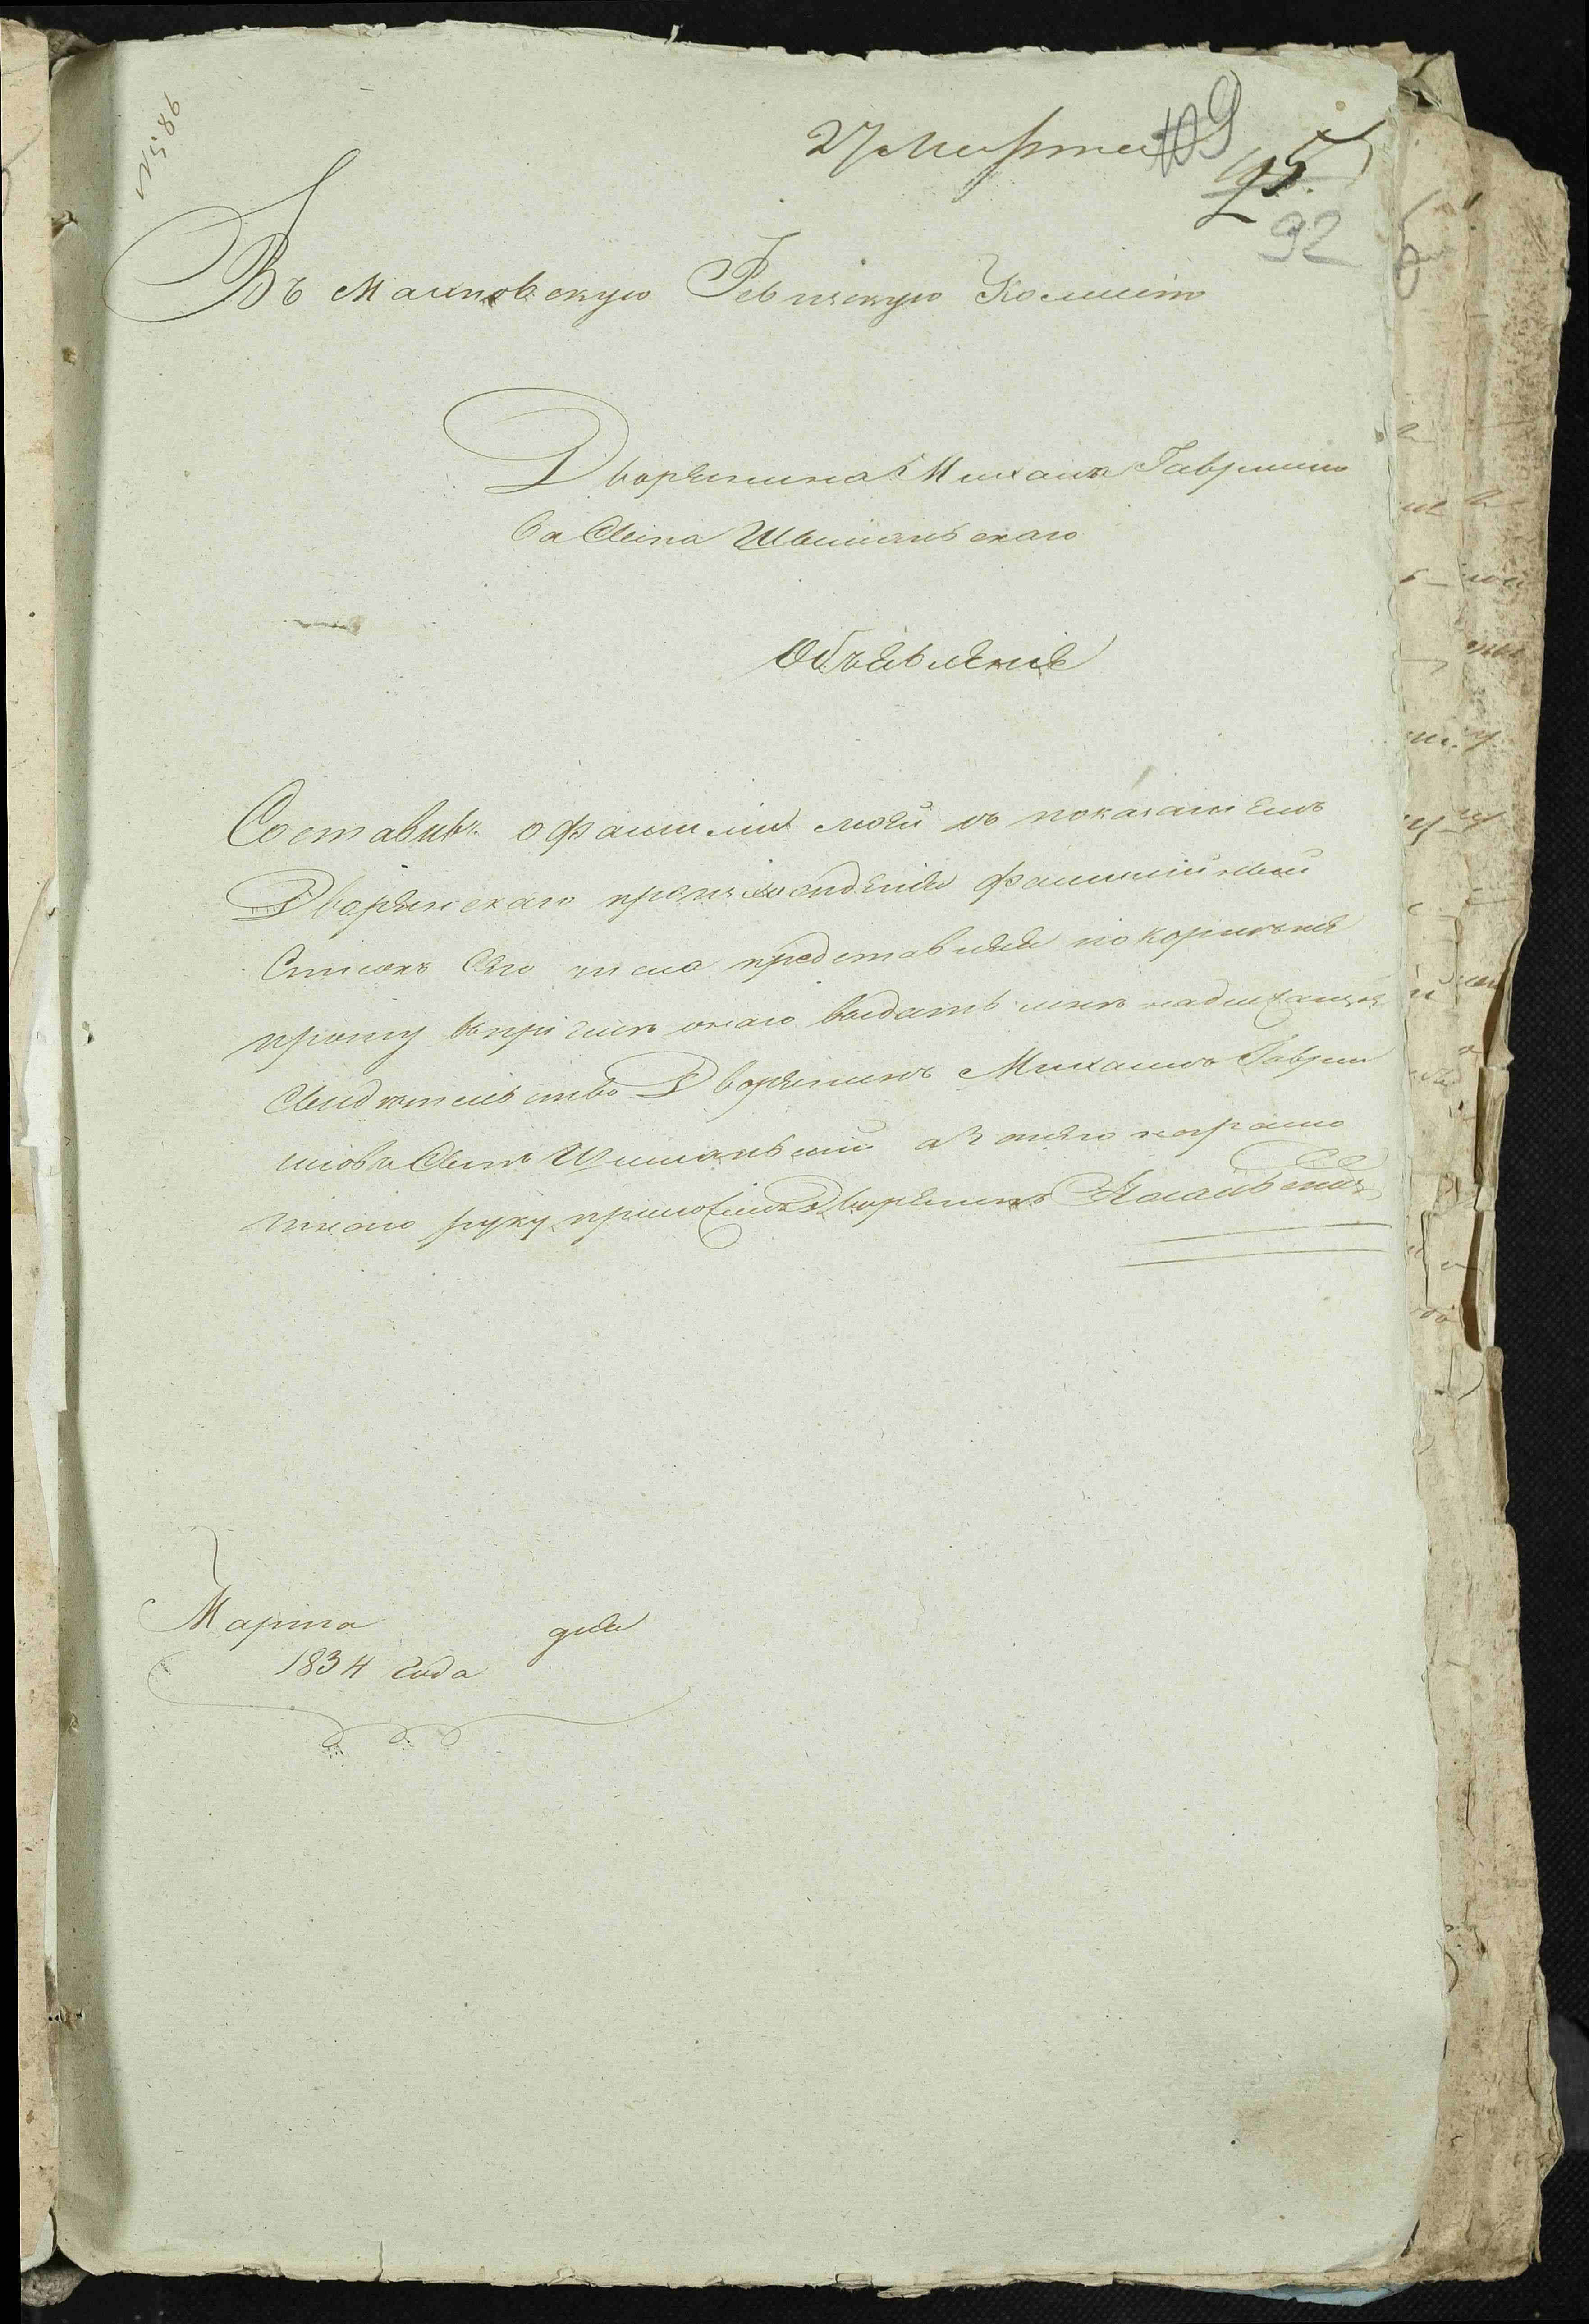 27 марта 109
95
92
Въ Махновскую Ревизскую Комисію
Дворянина Михаила Гаврило
ва Сына Шиманьскаго
Объявленіе
Составивъ о фамиліи моей съ показаніемъ
Дворянскаго произхожденія фамилійный
Списокъ Сего числа представляя покорнѣйше
прошу въпріемѣ онаго выдать мнѣ надлежащее
Свидѣтельство Дворянинъ Михаилъ Гаври
ловъ Сынъ Шиманьскій а вмѣсто неграмо
тнаго руку приложилъ Дворянинъ
Марта дня
1834 Года